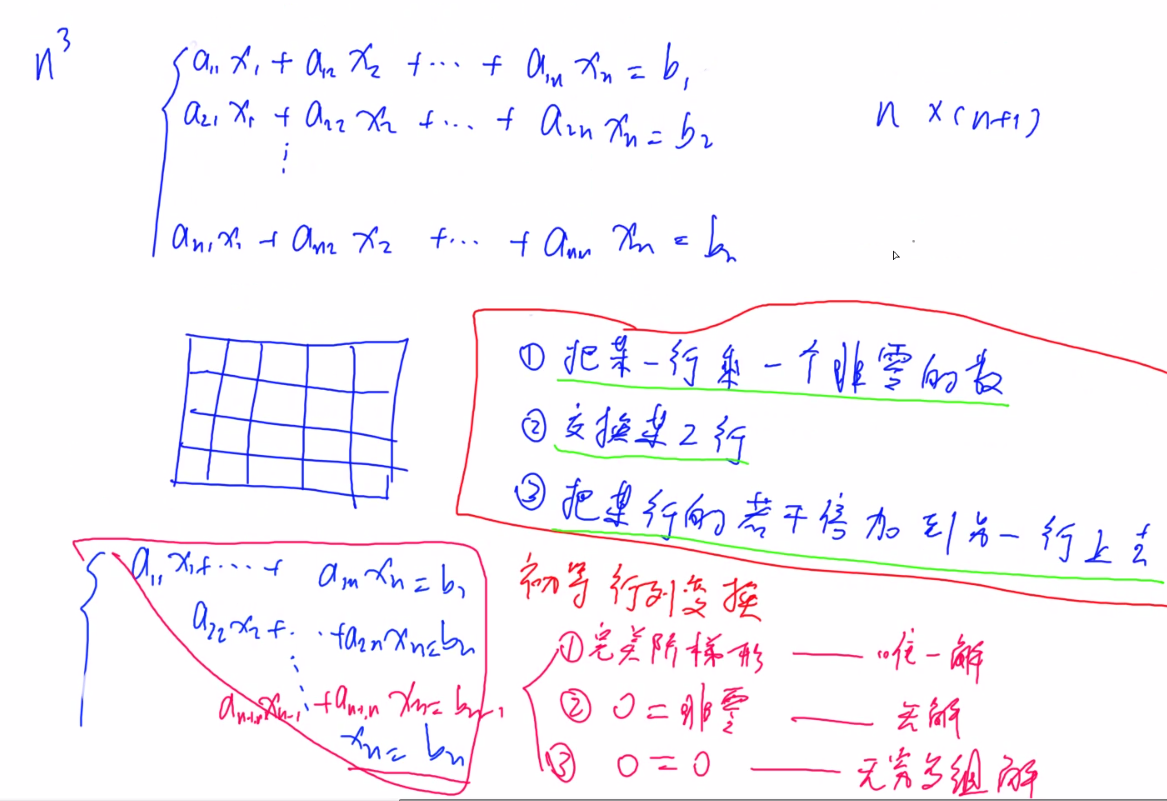 n³
a₁₁ x₁ + a₁₂ x₂ + ··· + a₁ₙ xₙ = b₁
a₂₁ x₁ + a₂₂ x₂ + ··· + a₂ₙ xₙ = b₂
⋮
aₙ₁ x₁ + aₙ₂ x₂ + ··· + aₙₙ xₙ = bₙ
n × (n+1)
① 把某一行乘一个非零的数
② 交换某2行
③ 把某行的若干倍加到另一行上去
初等行列变换
a₁₁ x₁ + ··· + a₁ₙ xₙ = b₁
a₂₂ x₂ + ··· + a₂ₙ xₙ = bₙ
⋮
aₙ₋₁,ₙ₋₁ xₙ₋₁ + aₙ₋₁,ₙ xₙ = bₙ₋₁
xₙ = bₙ
① 完美阶梯形 —— 唯一解
② 0 = 非零 —— 无解
③ 0 = 0 —— 无穷多组解